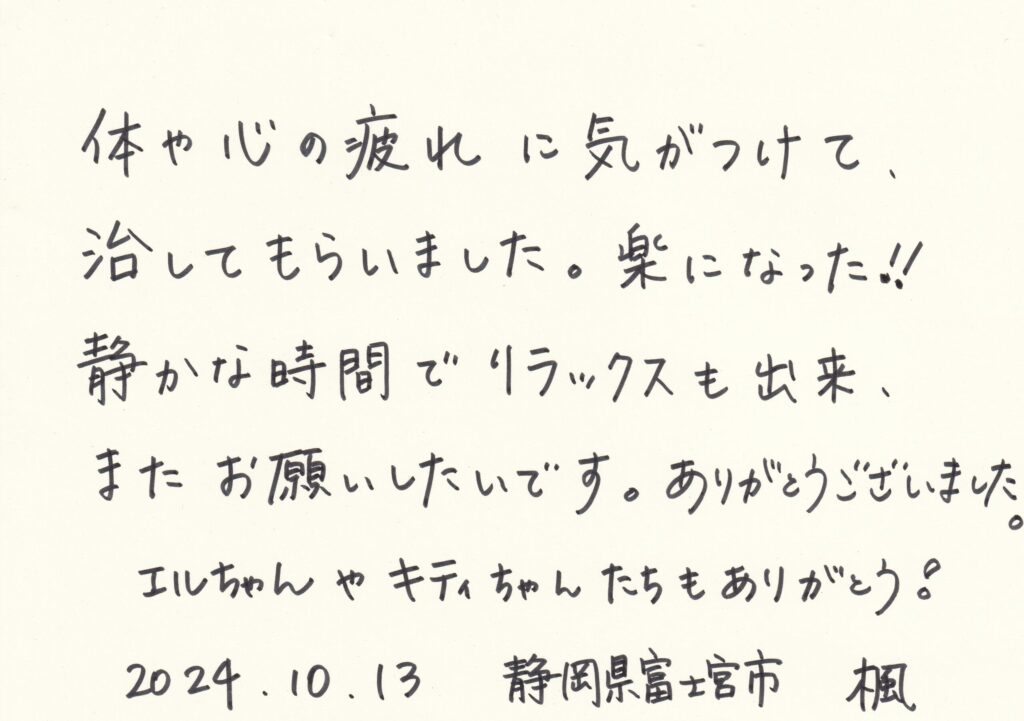 体や心の疲れに気がつけて、
治してもらいました。楽になった!!
静かな時間でリラックスも出来、
またお願いしたいです。ありがとうございました。
エルちゃんやキティちゃんたちもありがとう!
2024.10.13 静岡県富士宮市 楓